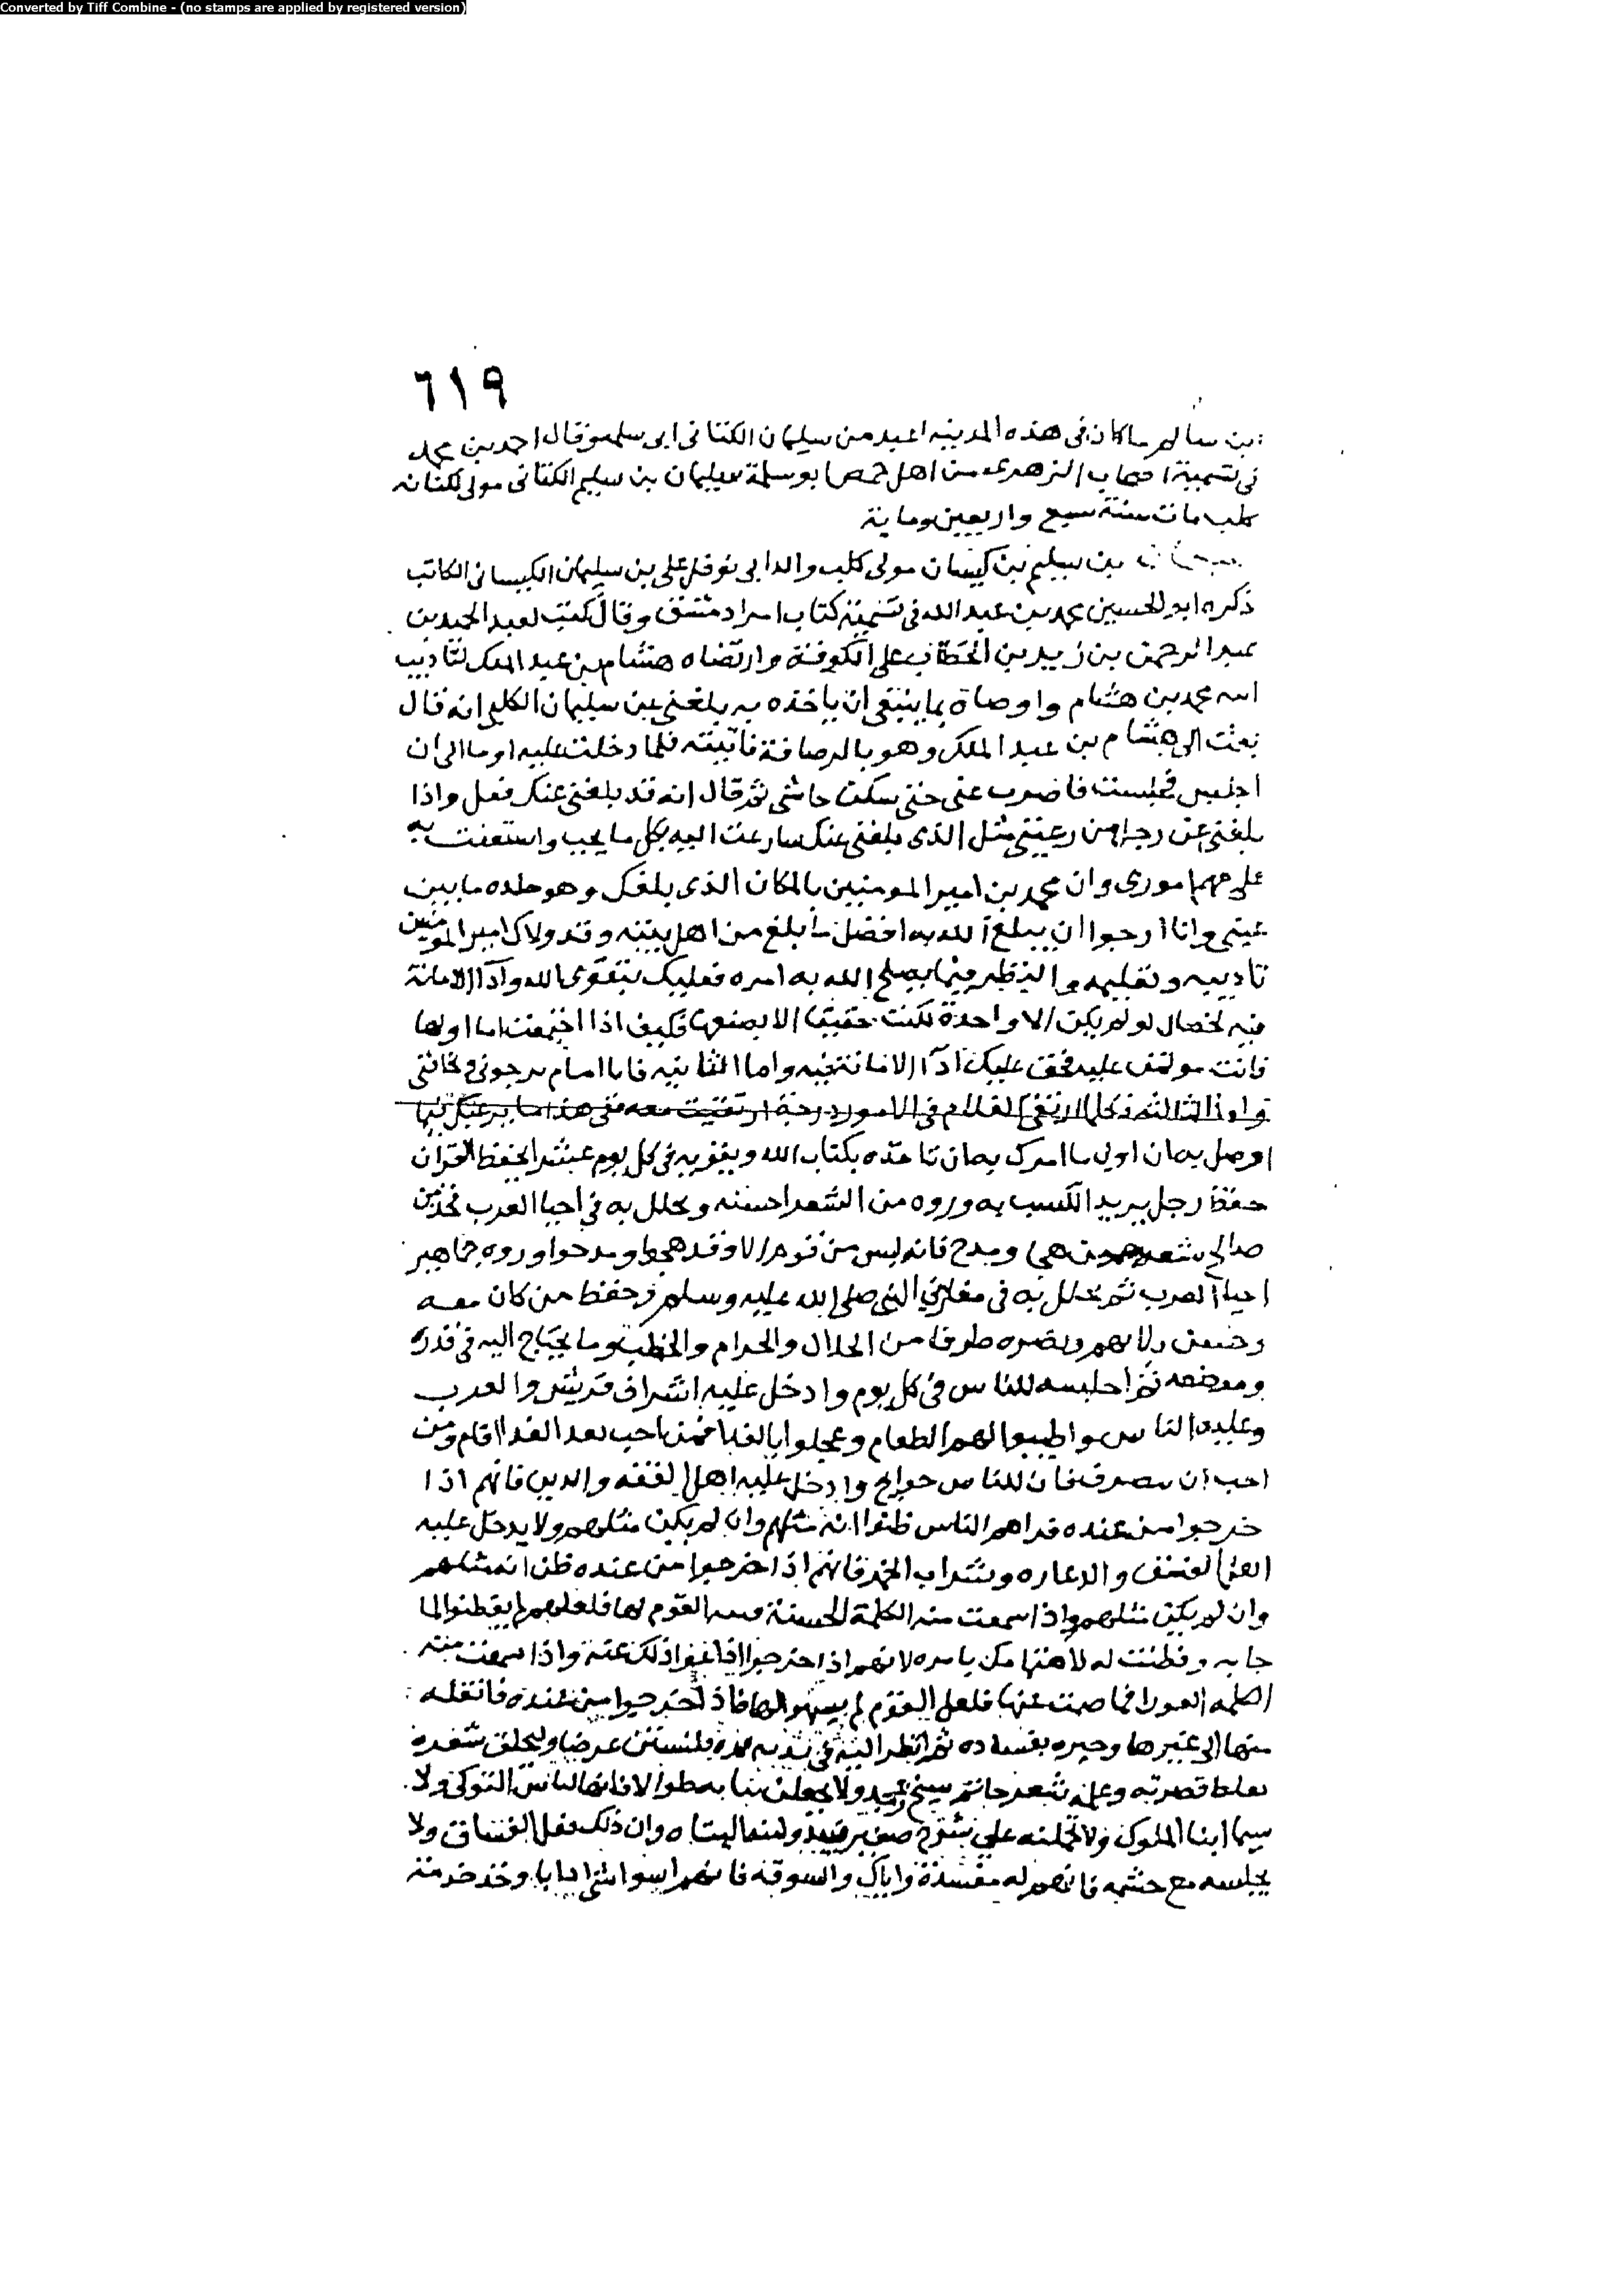 Converted by Tiff Combine - (no stamps are applied by registered version)
٦١٩
بن سالم ما كان فى هذه المدينه اعبد من سليمان الكنانى ابى سلمه وقال احمد بن محمد
فى تسمية اصحاب الزهرى من اهل حمص ابو سلمة سليمان بن سليم الكنانى مولى لكنانه
كلب مات سنة سبع واربعين وماية
بن سليم بن كيسان مولى كلب والد ابى نوفل على بن سليمان الكيسانى الكاتب
ذكره ابو الحسين محمد بن عبد الله فى تسمية كتاب امرا دمشق وقال كتب لعبد الحميد بن
عبد الرحمن بن زيد بن الخطاب على الكوفة وارتضاه هشام بن عبد الملك لتاديب
ابنه محمد بن هشام واوصاه بما ينبغى ان ياخذه به بلغنى عن سليمان الكلبى انه قال
بعث الى هشام بن عبد الملك وهو بالرصافة فاتيته فلما دخلت عليه اوما الى ان
اجلس فجلست فاضرب عنى حتى سكن جاشى ثم قال انه قد بلغنى عنك فضل واذا
بلغنى عن رجل من رعيتى مثل الذى بلغنى عنك سارعت اليه بكل ما يحب واستعنت به
على مهم امورى وان محمد بن امير المومنين بالمكان الذى بلغك وهو جلده ما بين
عينى وانا ارجوا ان يبلغ الله به افضل ما بلغ من اهل بيته وقد ولاك امير المومنين
تاديبه وتعليمه والنظر فيما يصلح الله به امره فعليك بتقوى الله وآدآ الامانة
فيه لخصال لو لم يكن الا واحدة لكنت حقيقا الا يضعها فكيف اذا اجتمعت اما اولها
فانت موتمن عليه فحق عليك ادآ الامانة فيه واما الثانيه فانا امام ترجونى وتخافنى
واما الثالثة فكلما ارتقى الغلام فى الامور درجة ارتقيت معه ففى هذا ما يرغبك فيما
اوصيك به ان اول ما امرك به ان تاخذه بكتاب الله ويقريه فى كل يوم عشرا ليحفظ القرآن
حفظ رجل يريد الكسب به وروه من الشعر احسنه وتخلل به فى احيا العرب فخذ من
صالح شعرهم من هجا ومدح فانه ليس من قوم الا وقد هجوا ومدحوا وروه جماهير
احيا العرب ثم تخلل به فى مغازى النبى صلى الله عليه وسلم وحفظ من كان معه
وحسن بلايهم وبصره طرفا من الحلال والحرام والخطب وما يحتاج اليه فى قدره
وموضعه ثم اجلسه للناس فى كل يوم وادخل عليه اشراف قريش والعرب
وعليه الناس واطيبوا لهم الطعام وعجلوا بالغدا فمن احب بعد الغدا اقام ومن
احب ان ينصرف فان للناس حوايج وادخل عليه اهل الفقه والدين فانهم اذا
خرجوا من عنده فراهم الناس ظنوا انه مثلهم وان لم يكن مثلهم ولا يدخل عليه
اهل الفسق والدعاره وشراب الخمر فانهم اذا خرجوا من عنده ظن انه مثلهم
وان لم يكن مثلهم واذا سمعت منه الكلمة الحسنة القوم لها فلعلهم لم يفطنوا لما
جا به وفطنت له يا سره لانهم اذا خرجوا اذاعوا ذلك عنه واذا سمعت منه
الكلمه العورا فاصمت عنها فلعل القوم لم يسمهوا لها فاذا خرجوا من عنده فانقله
منها الى غيرها وخبره بفساده ثم انظر اليه فى فليستن عرضا وليحلق شعره
قصرته وعلمه شعر حاتم ولا فانها لباس النوكى ولا
سيما ابنا الملوك ولا تحملنه على وان ذلك فعل الفساق ولا
يجلسه مع حشمه فانهم له مفسدة واياك والسوقه فانهم اسوا شى ادابا وخذ خدمته